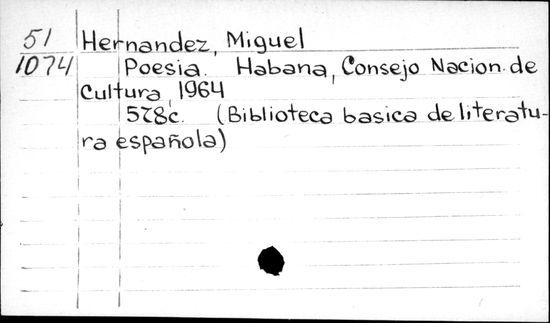 51 Hernandez, Miguel
1074 Poesia. Habana, Consejo Nacion. de
Cultura, 1964
578c. (Biblioteca basica de literatu-
ra española)